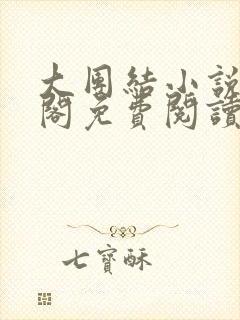 大團結小說
閣免費閱讀
七寶酥